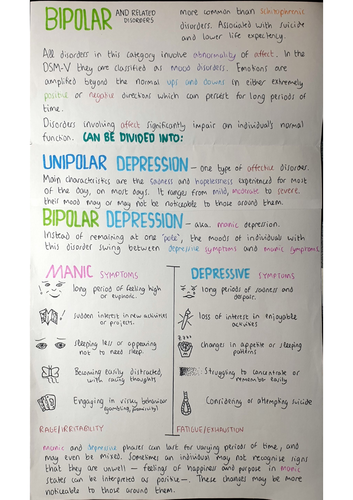 BIPOLAR AND RELATED DISORDERS
more common than schizophrenia
disorders. Associated with suicide
and lower life expectancy.
All disorders in this category involve abnormality of affect. In the
DSM-V they are classified as mood disorders. Emotions are
amplified beyond the normal ups and downs in either extremely
positive or negative directions which can persist for long periods of
time.
Disorders involving affect significantly impair an individual's normal
function. CAN BE DIVIDED INTO:
UNIPOLAR DEPRESSION - one type of affective disorder.
Main characteristics are the sadness and hopelessness experienced for most
of the day, on most days. It ranges from mild, moderate to severe.
their mood may or may not be noticeable to those around them.
BIPOLAR DEPRESSION - aka. manic depression.
Instead of remaining at one 'pole', the moods of individual with
this disorder swing between depressive symptoms and manic symptoms.
MANIC SYMPTOMS
long period of feeling high
or euphoric.
sudden interest in new activities
or projects.
sleeping less or appearing
not to need sleep.
Becoming easily distracted,
with racing thoughts
Engaging in risky behaviour
(gambling, )
RAGE/IRRITABILITY
DEPRESSIVE SYMPTOMS
long periods of sadness and
despair.
loss of interest in enjoyable
activities
changes in appetite or sleeping
patterns
Struggling to concentrate or
remember easily
Considering or attempting suicide
FATIGUE/EXHAUSTION
manic and depressive phases can last for varying periods of time, and
may even be mixed. Sometimes an individual may not recognise signs
that they are unwell - feelings of happiness and purpose in manic
states can be interpreted as positive. These changes may be more
noticeable to those around them.